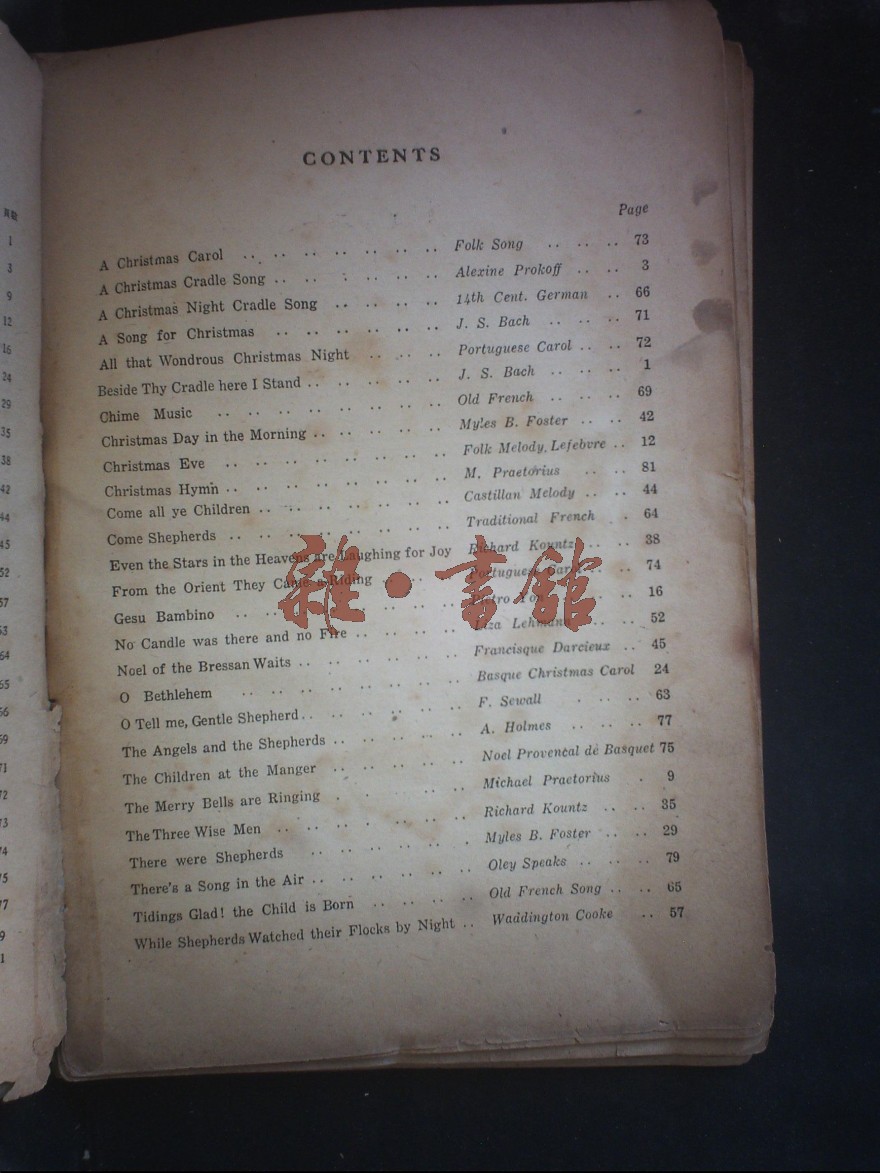 1
3
9
12
16
24
29
35
38
42
44
45
52
57
64
65
CONTENTS
Page
A Christmas Carol .. .. .. .. .. .. .. Folk Song .. .. .. 73
A Christmas Cradle Song .. .. .. .. .. .. Alexine Prokoff .. .. 3
A Christmas Night Cradle Song .. .. .. .. 14th Cent. German .. 66
A Song for Christmas .. .. .. .. .. .. J. S. Bach .. .. .. 71
All that Wondrous Christmas Night .. .. .. Portuguese Carol .. .. 72
Beside Thy Cradle here I Stand .. .. .. .. .. J. S. Bach .. .. .. 1
Chime Music .. .. .. .. .. .. .. .. Old French .. .. .. 69
Christmas Day in the Morning .. .. .. .. .. Myles B. Foster .. .. 42
Christmas Eve .. .. .. .. .. .. .. .. Folk Melody, Lefebvre .. 12
Christmas Hymn .. .. .. .. .. .. .. .. M. Praetorius .. .. 81
Come all ye Children .. .. .. .. .. .. .. Castillan Melody .. .. 44
Come Shepherds .. .. .. .. .. .. .. .. Traditional French . 64
Even the Stars in the Heavens are Laughing for Joy Richard Kountz .. .. 38
From the Orient They Came a Riding .. .. .. Portuguese Carol .. .. 74
Gesu Bambino .. .. .. .. .. .. .. .. Pietro Yon .. .. .. 16
No Candle was there and no Fire .. .. .. .. Liza Lehmann .. .. 52
Noel of the Bressan Waits .. .. .. .. .. .. Francisque Darcieux .. 45
O Bethlehem .. .. .. .. .. .. .. Basque Christmas Carol 24
O Tell me, Gentle Shepherd .. .. .. .. .. .. F. Sewall . .. .. .. 63
The Angels and the Shepherds .. .. .. .. .. A. Holmes .. .. .. 77
The Children at the Manger .. .. .. .. . Noel Provencal de Basquet 75
The Merry Bells are Ringing . . .. .. .. Michael Praetorius . 9
The Three Wise Men .. .. .. .. .. .. .. Richard Kountz .. .. 35
There were Shepherds .. .. .. .. .. . Myles B. Foster .. .. 29
There's a Song in the Air .. .. .. .. .. .. Oley Speaks .. .. .. 79
Tidings Glad! the Child is Born .. .. .. .. Old French Song .. .. 65
While Shepherds Watched their Flocks by Night .. Waddington Cooke .. 57
雜·書舘